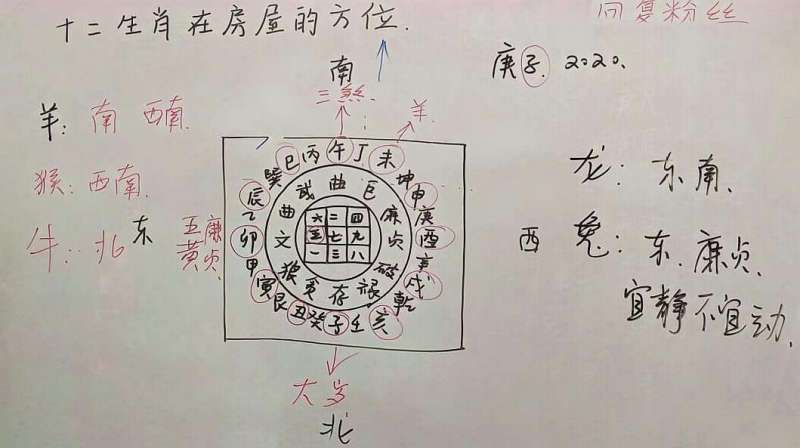 十二生肖在房屋的方位.
回复粉丝
庚子. 2020.
南
三煞.
羊.
羊: 南 西南
猴: 西南.
牛: 北东
五黄
廉贞
龙: 东南.
西 兔: 东. 廉贞.
宜静不宜动.
巳丙午丁未
坤申庚酉辛戌乾
亥壬子癸丑
艮寅甲卯乙辰巽
武曲巨
廉贞破禄存
狼文曲
六二四
五七九
一三八
大岁
北